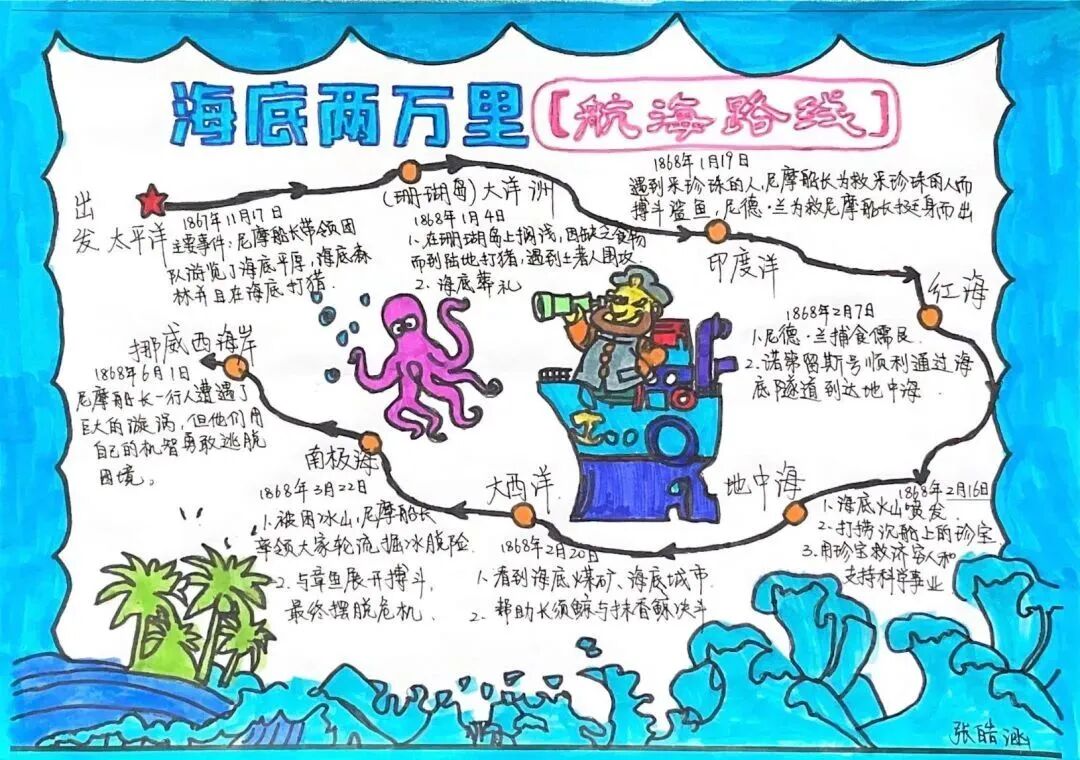 海底两万里
【航海路线】
出发 太平洋
1867年11月17日
主要事件:尼摩船长带领团
队游览了海底平原,海底森
林并且在海底打猎.
(珊瑚岛)大洋洲
1868年1月4日
1.在珊瑚岛上搁浅,因缺乏食物
而到陆地打猪,遇到土著人围攻.
2.海底葬礼
1868年1月19日
遇到采珍珠的人,尼摩船长为救采珍珠的人而
搏斗鲨鱼,尼德·兰为救尼摩船长挺身而出
印度洋
红海
1868年2月7日
1.尼德·兰捕食儒艮
2.诺第留斯号顺利通过海
底隧道到达地中海.
地中海
1868年2月16日
1.海底火山喷发.
2.打捞沉船上的珍宝
3.用珍宝救济穷人和
支持科学事业
大西洋
1868年2月20日
1.看到海底煤矿、海底城市.
2.帮助长须鲸与抹香鲸决斗
南极海
1868年3月22日
1.被困冰山,尼摩船长
率领大家轮流掘冰脱险.
2.与章鱼展开搏斗,
最终摆脱危机.
挪威西海岸
1868年6月1日
尼摩船长一行人遭遇了
巨大的漩涡,但他们用
自己的机智勇敢逃脱
困境。
张皓涵